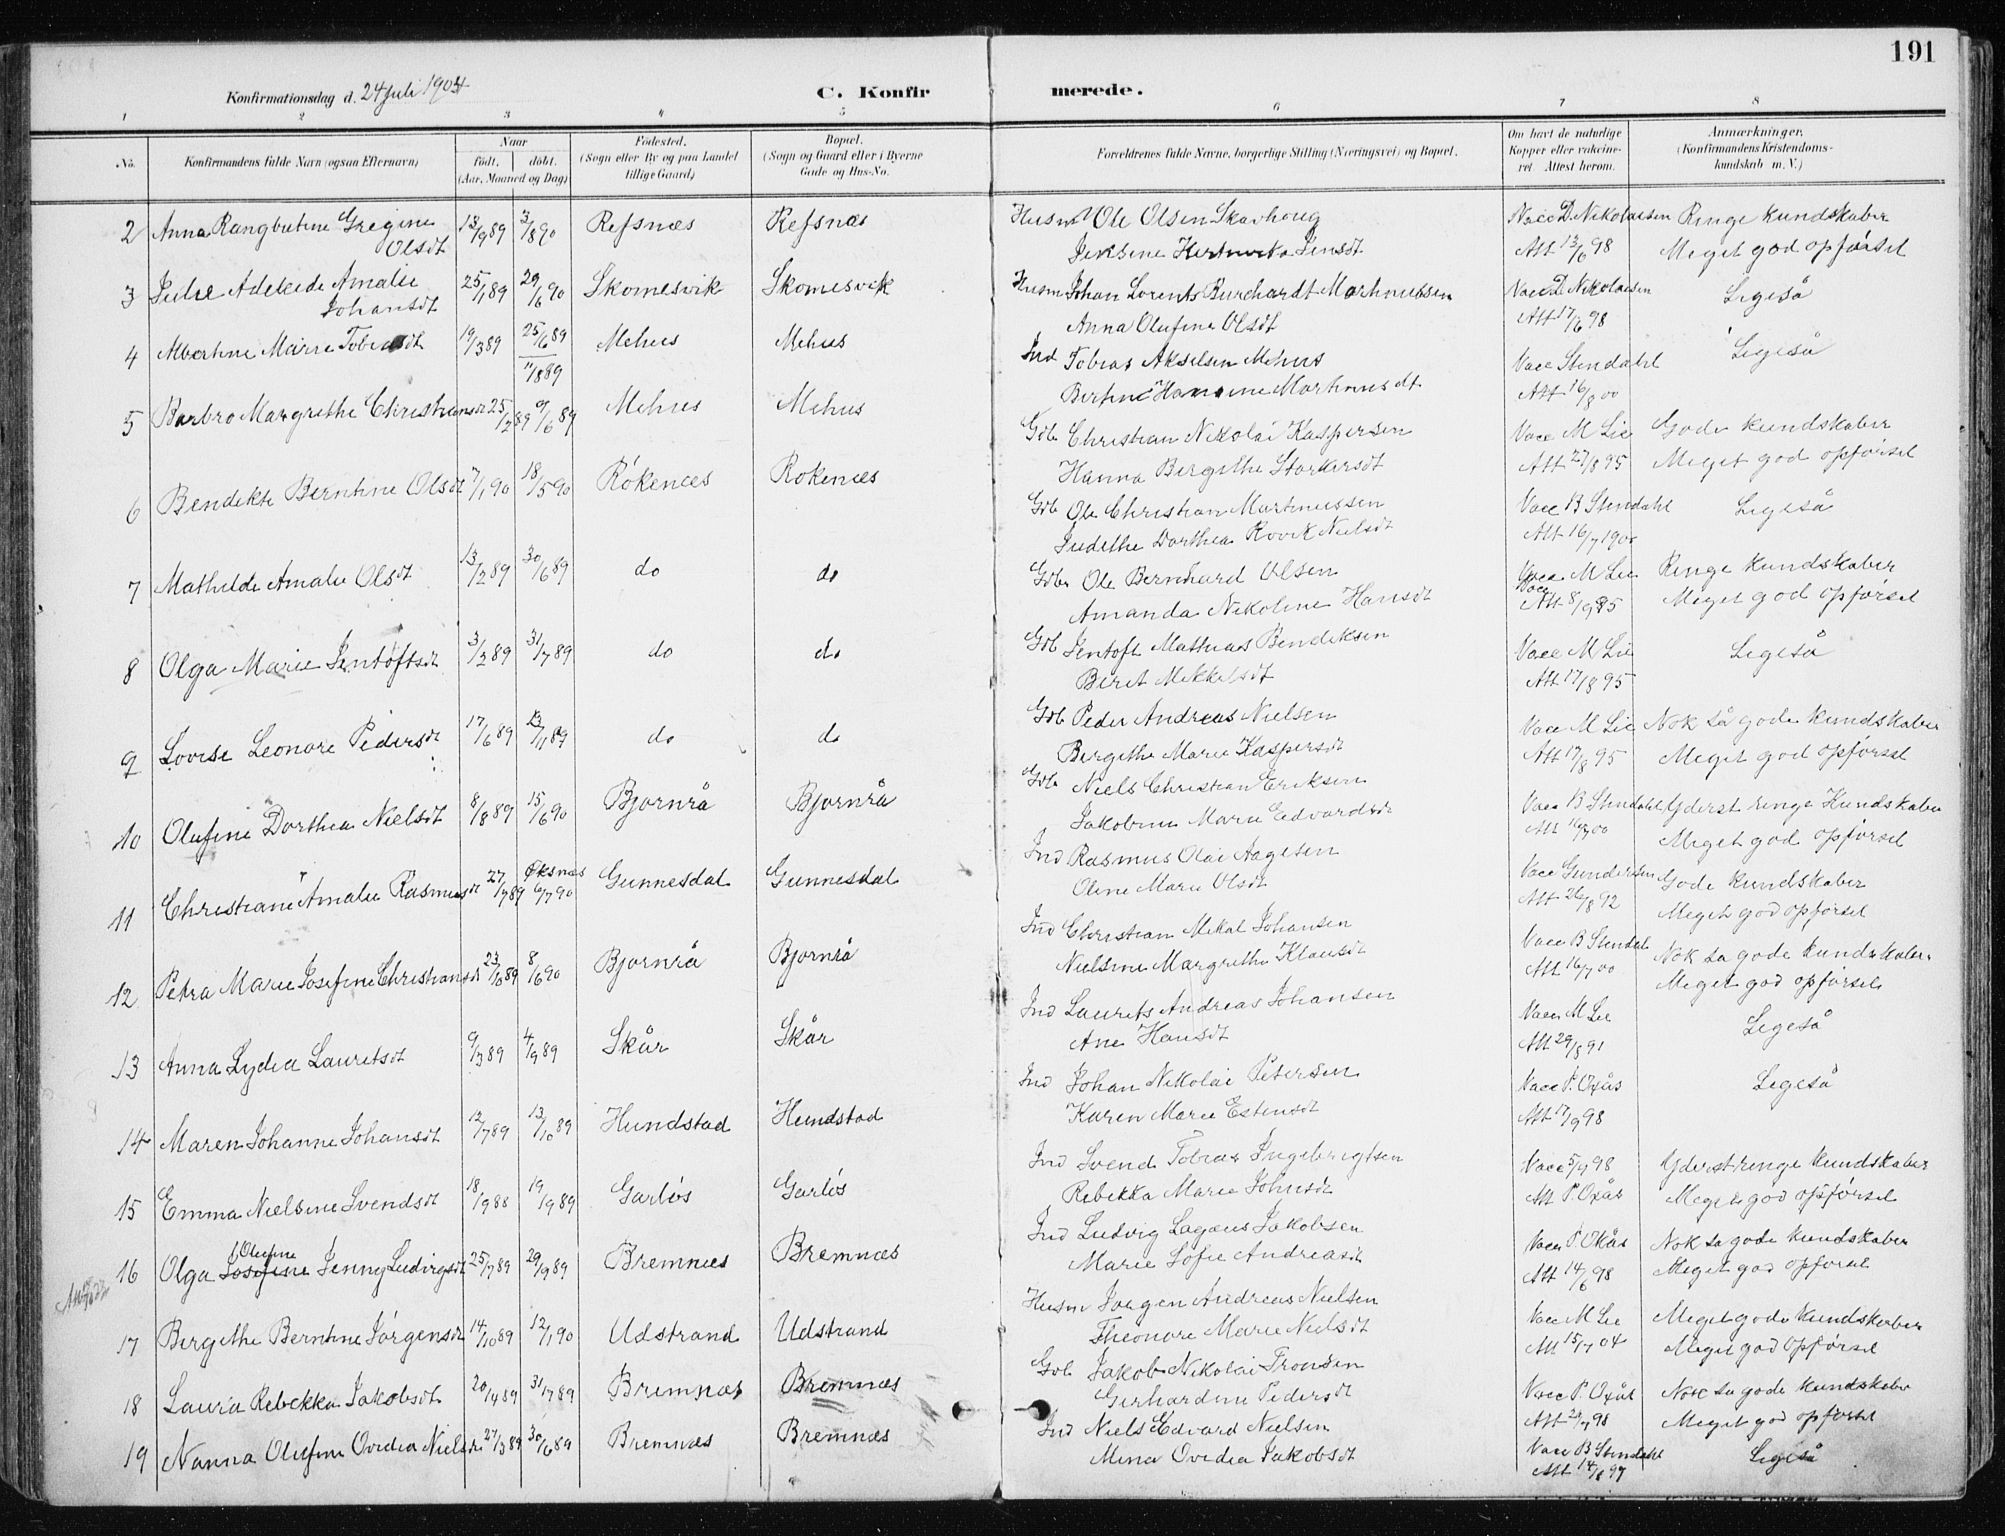 191
Konfirmationsdag d. 24 Juli 1904
C. Konfirmerede.
1 2 3 4 5 6 7 8
No. Konfirmandens fulde Navn (ogsaa Efternavn) Naar født. døbt. (Aar, Maaned og Dag) Fødested. (Sogn eller By og paa Landet tillige Gaard) Bopæl. (Sogn og Gaard eller i Byerne Gade og Hus-No. Forældrenes fulde Navne, borgerlige Stilling (Næringsvei) og Bopæl. Om havt de naturlige Kopper eller vakcineret. Attest herom. Anmærkninger. (Konfirmandens Kristendomskundskab m. V.)
2 Anna Gregine Olsdt 13/9 89 3/8 90 Refsnæs Refsnæs Husm Ole Olsen Skavhoug Vacc D. Nikolaisen Ringe kundskaber
Jensine Jensdt Att 13/6 98 Meget god opførsel
3 Julie Adeleide Amalie Johansdt 25/1 89 29/6 90 Skomesvik Skomesvik Husm Johan Lorents Burchardt Marthinussen Vacc D. Nikolaisen Ligeså
Anna Olufine Olsdt Att 17/6 98
4 Albertine Marie Tobiasdt 19/3 89 25/6 89 11/8 89 Mehus Mehus Ind Tobias Akselsen Mehus Vacc Stendahl Ligeså
Hansine Marthinusdt Att 16/8 00
5 Barbro Margrethe Christiansdt 25/2 89 9/6 89 Mehus Mehus Gdb Christian Nikolai Kaspersen Vacc M Lie Gode kundskaber
Hanna Bergithe Att 27/8 95 Meget god opførsel
6 Bendikte Berntine Olsdt 7/1 90 18/5 90 Rökenæs Rokenæs Gdb Ole Christian Martinussen Vacc B Stendahl Ligeså
Judithe Dorthea Rovik Nielsdt Att 16/7 1900
7 Mathilde Amalie Olsdt 13/2 89 30/6 89 do do Gdbr Ole Bernhard Olsen Vacc M Lie Ringe kundskaber
Amanda Nikoline Hansdt Att 8/9 95 Meget god opførsel
8 Olga Marie Jentoftsdt 3/2 89 31/7 89 do do Gdb Jentoft Mathias Bendiksen Vacc M Lie Ligeså
Beret Mikkelsdt Att 17/8 95
9 Lovise Leonore Pedersdt 17/6 89 13/11 89 do do Gdb Peder Andreas Nielsen Vacc M Lie Nok så gode kundskaber
Bergithe Marie Kaspersdt Att 17/8 95 Meget god opførsel
10 Olufine Dorthea Nielsdt 8/8 89 15/6 90 Bjornrå Bjornrå Gdb Niels Christian Eriksen Vacc B Stendahl Yderst ringe Kundskaber
Jakobine Marie Edvardsdt Meget god opførsel
11 Christiane Amalie Rasmusdt 27/7 89 Øksnes 6/7 90 Gunnesdal Gunnesdal Ind Rasmus Olai Aagesen Vacc Gundersen Gode kundskaber
Oline Marie Olsdt Att 26/8 92 Meget god opførsel
12 Petra Marie Josefine Christiansdt 23/10 89 8/6 90 Bjornrå Bjornrå Ind Christian Mikal Johansen Vacc B Stendal Nok sa gode kundskaber
Nielsine Margrethe Klausdt Att 16/7 00 Meget god opførsel
13 Anna Lydia Lauritsdt 9/3 89 4/9 89 Skår Skår Ind Laurits Andreas Johansen Vacc M Lie Ligeså
Ane Hansdt Att 29/8 91
14 Maren Johanne Johansdt 12/7 89 13/10 89 Hundstad Hundstad Ind Johan Nikolai Petersen Vacc P. Oxås Ligeså
Karen Marie Estensdt Att 17/9 98
15 Emma Nielsine Svendsdt 18/9 88 19/9 89 Garløs Garløs Ind Svend Tobias Ingebrigtsen Vacc 5/7 98 Yderst ringe kundskaber
Rebekka Marie Johnsdt Att P. Oxås Meget god opførsel
16 Olga Josefine Olufine Jenny Ludvigsdt 25/7 89 29/9 89 Bremnæs Bremnæs Ind Ludvig Lagæus Jakobsen Vacc P. Okås Nok sa gode kundskaber
Marie Sofie Andreasdt Att 14/6 98 Meget god opførsel
17 Bergithe Berntine Jørgensdt 14/10 89 12/1 90 Udstrand Udstrand Husm Jørgen Andreas Nielsen Vacc M Lie Meget gode kundskaber
Theonore Marie Nielsdt Att 15/7 04 Meget god opførsel
18 Laura Rebekka Jakobsdt 20/4 89 31/7 89 Bremnæs Bremnæs Gdb Jakob Nikolai Tronsen Vacc P. Oxås Nok sa gode kundskaber
Gerhardine Pedersdt Meget god opførsel
19 Nanna Olufine Ovidia Nielsdt 27/3 89 30/6 89 Bremnæs Bremnæs Ind Niels Edvard Nielsen Vacc B Stendahl Ligeså
Mina Ovidia Jakobsdt Att 14/8 97